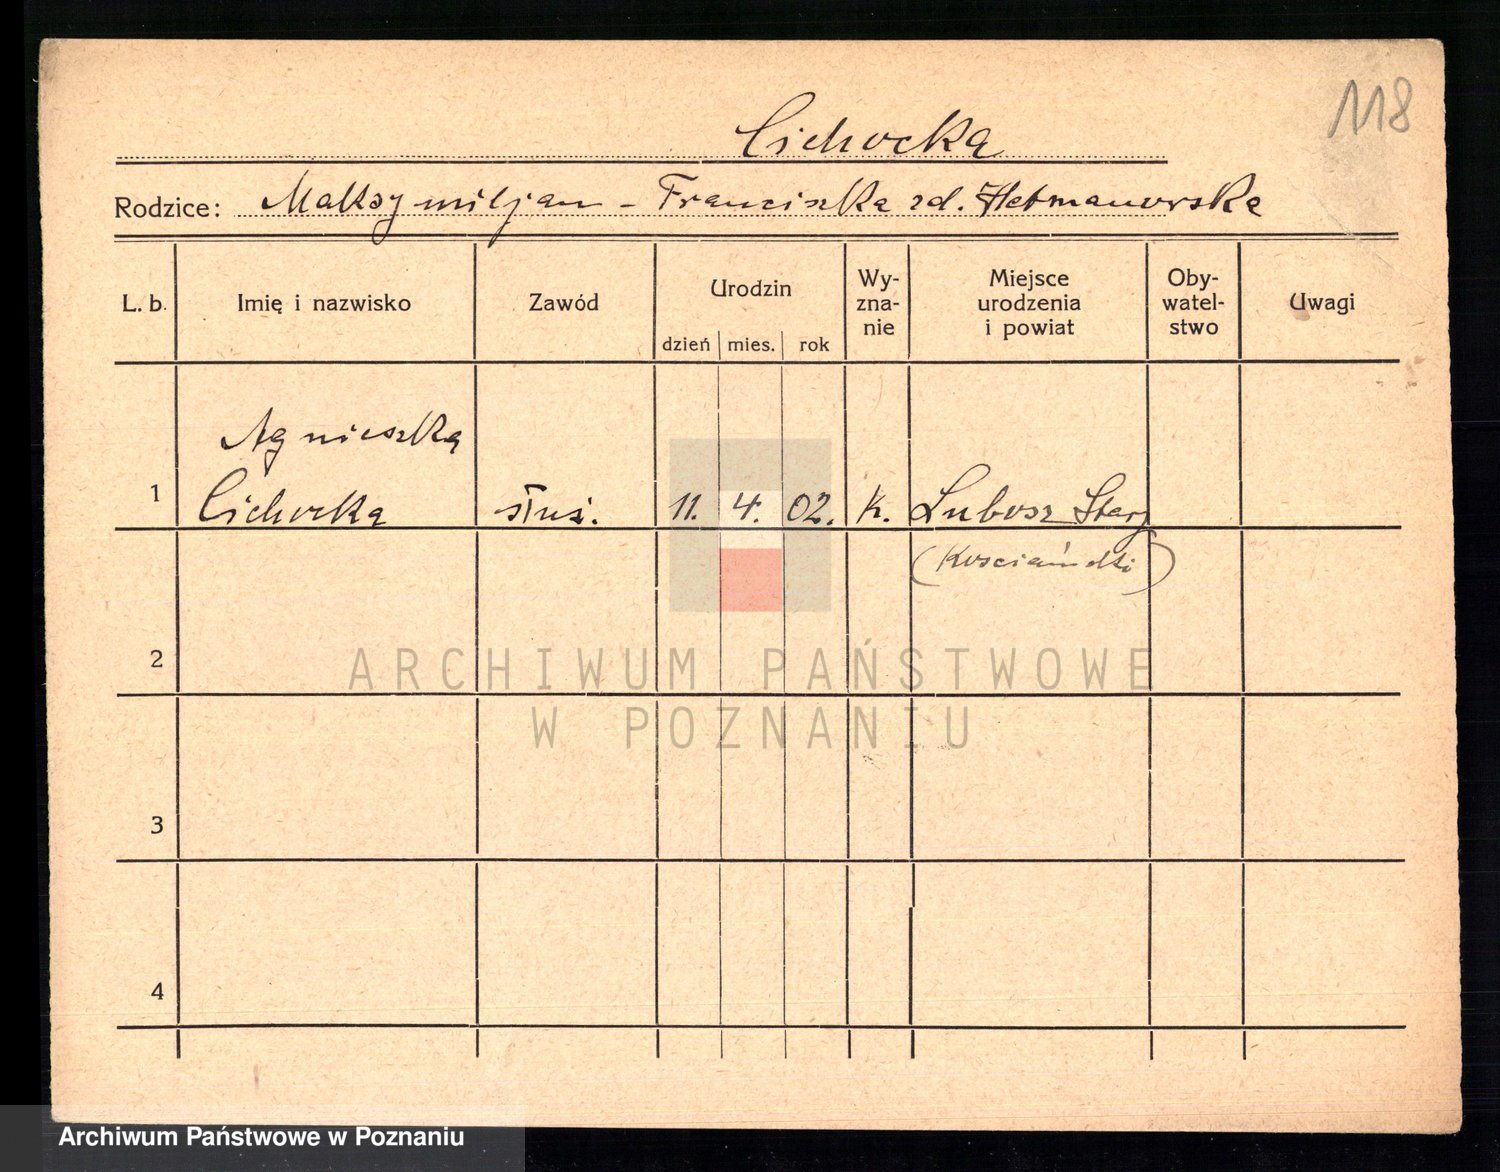 118
Cichocka
Rodzice: Maksymiljan - Franciszka zd. Hetmanowska
L. b. Imię i nazwisko Zawód Urodzin dzień mies. rok Wy-zna-nie Miejsce urodzenia i powiat Oby-watel-stwo Uwagi
Agnieszka
1 Cichocka służ. 11. 4. 02. K. Lubosz Stary
(Kościański)
2
ARCHIWUM PAŃSTWOWE
W POZNANIU
3
4
Archiwum Państwowe w Poznaniu